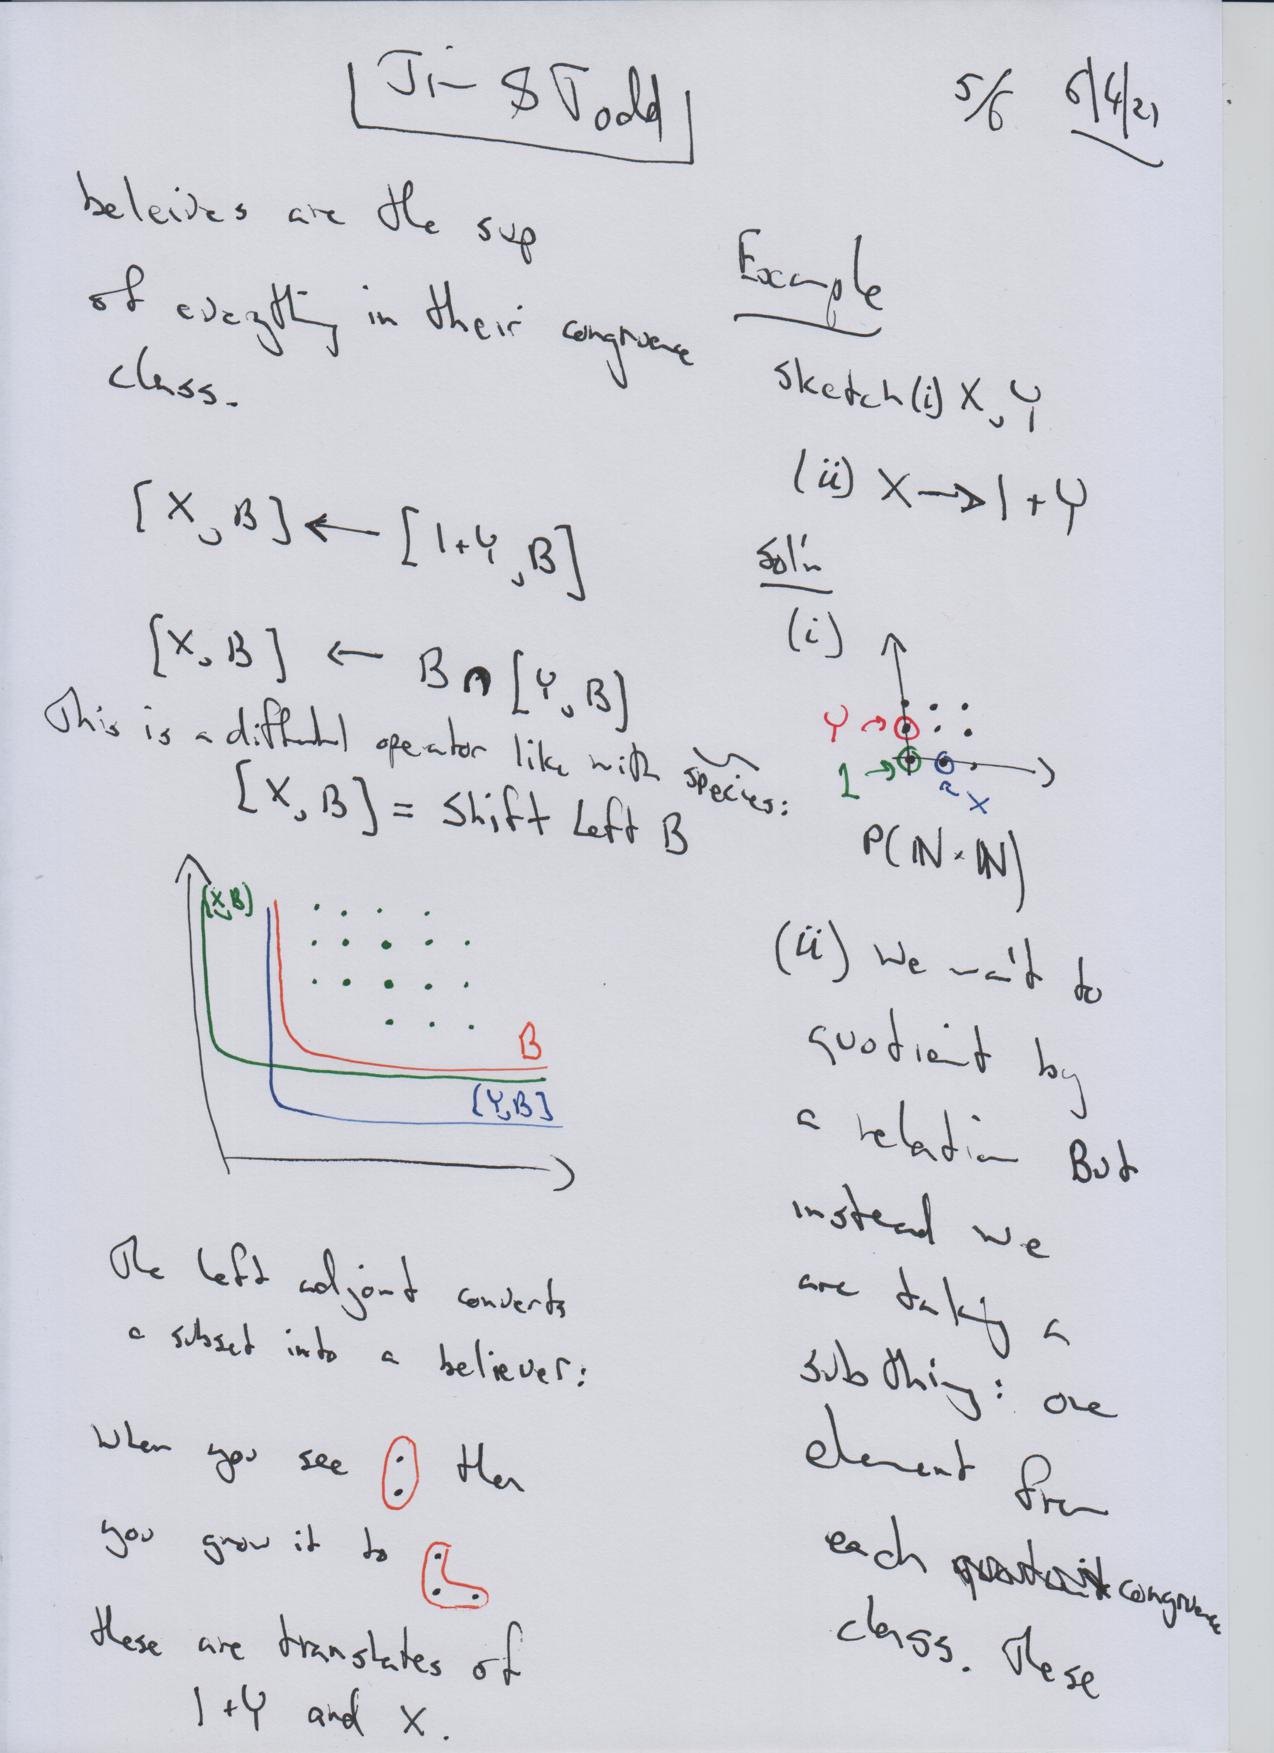 Jim & Todd
5/6 6/4/21
beleives are the sup
of everything in their congruence
class.
[X, B] ← [1+Y, B]
[X, B] ← B ∩ [Y, B]
This is a differential operator like with species:
[X, B] = Shift Left B
[X,B]
B
[Y,B]
The left adjoint converts
a subset into a believer:
When you see then
you grow it to
these are translates of
1+Y and X.
Example
sketch (i) X, Y
(ii) X → 1+Y
sol'n
(i)
Y →
1 →
X
P(ℕ × ℕ)
(ii) We wan't to
quotient by
a relation But
instead we
are taking a
sub thing: one
element from
each congruence
class. These